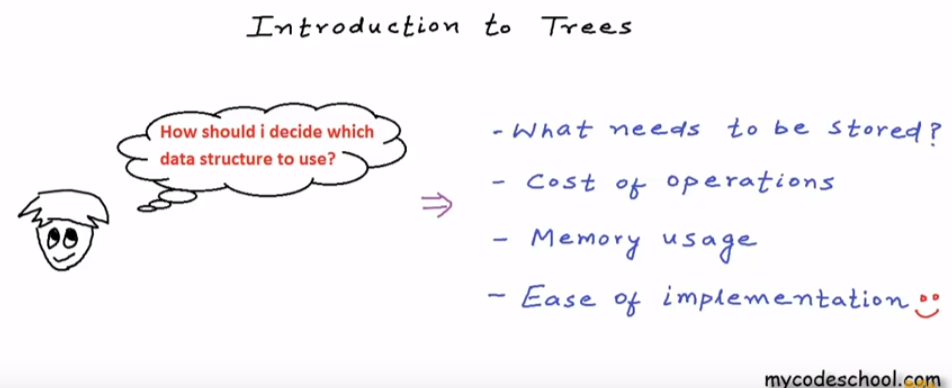 Introduction to Trees
How should i decide which
data structure to use?
- What needs to be stored?
- Cost of operations
- Memory usage
- Ease of implementation
mycodeschool.com